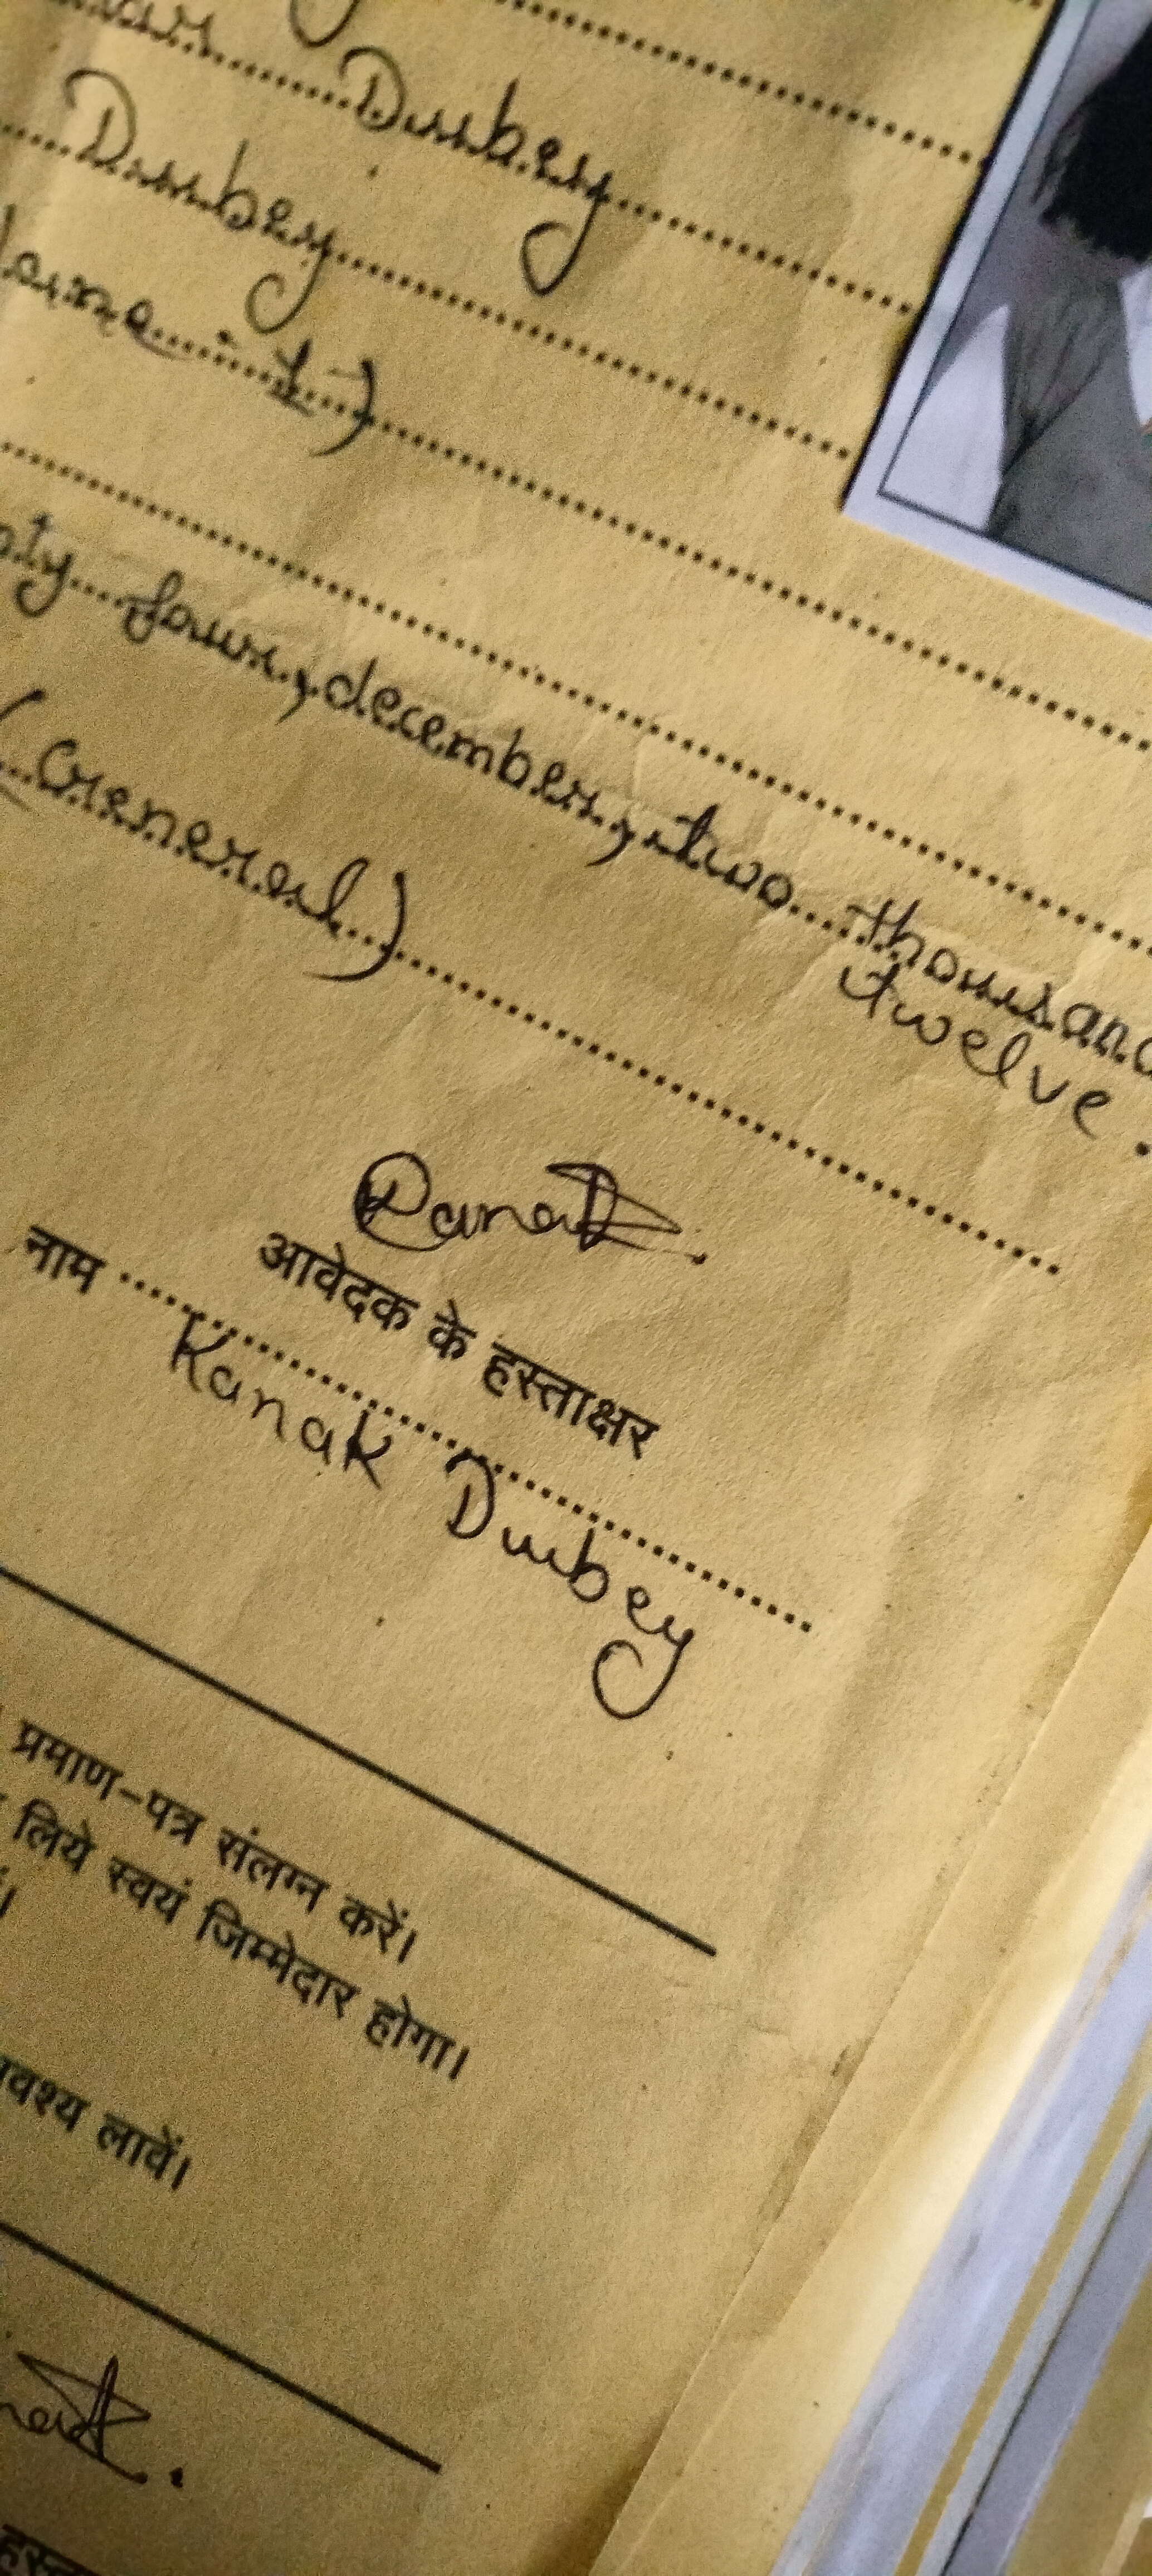 Dubey
Dubey
four, december, two thousand
twelve.
(General)
Kanak
आवेदक के हस्ताक्षर
नाम
Kanak Dubey
प्रमाण-पत्र संलग्न करें।
लिये स्वयं जिम्मेदार होगा।
लावें।